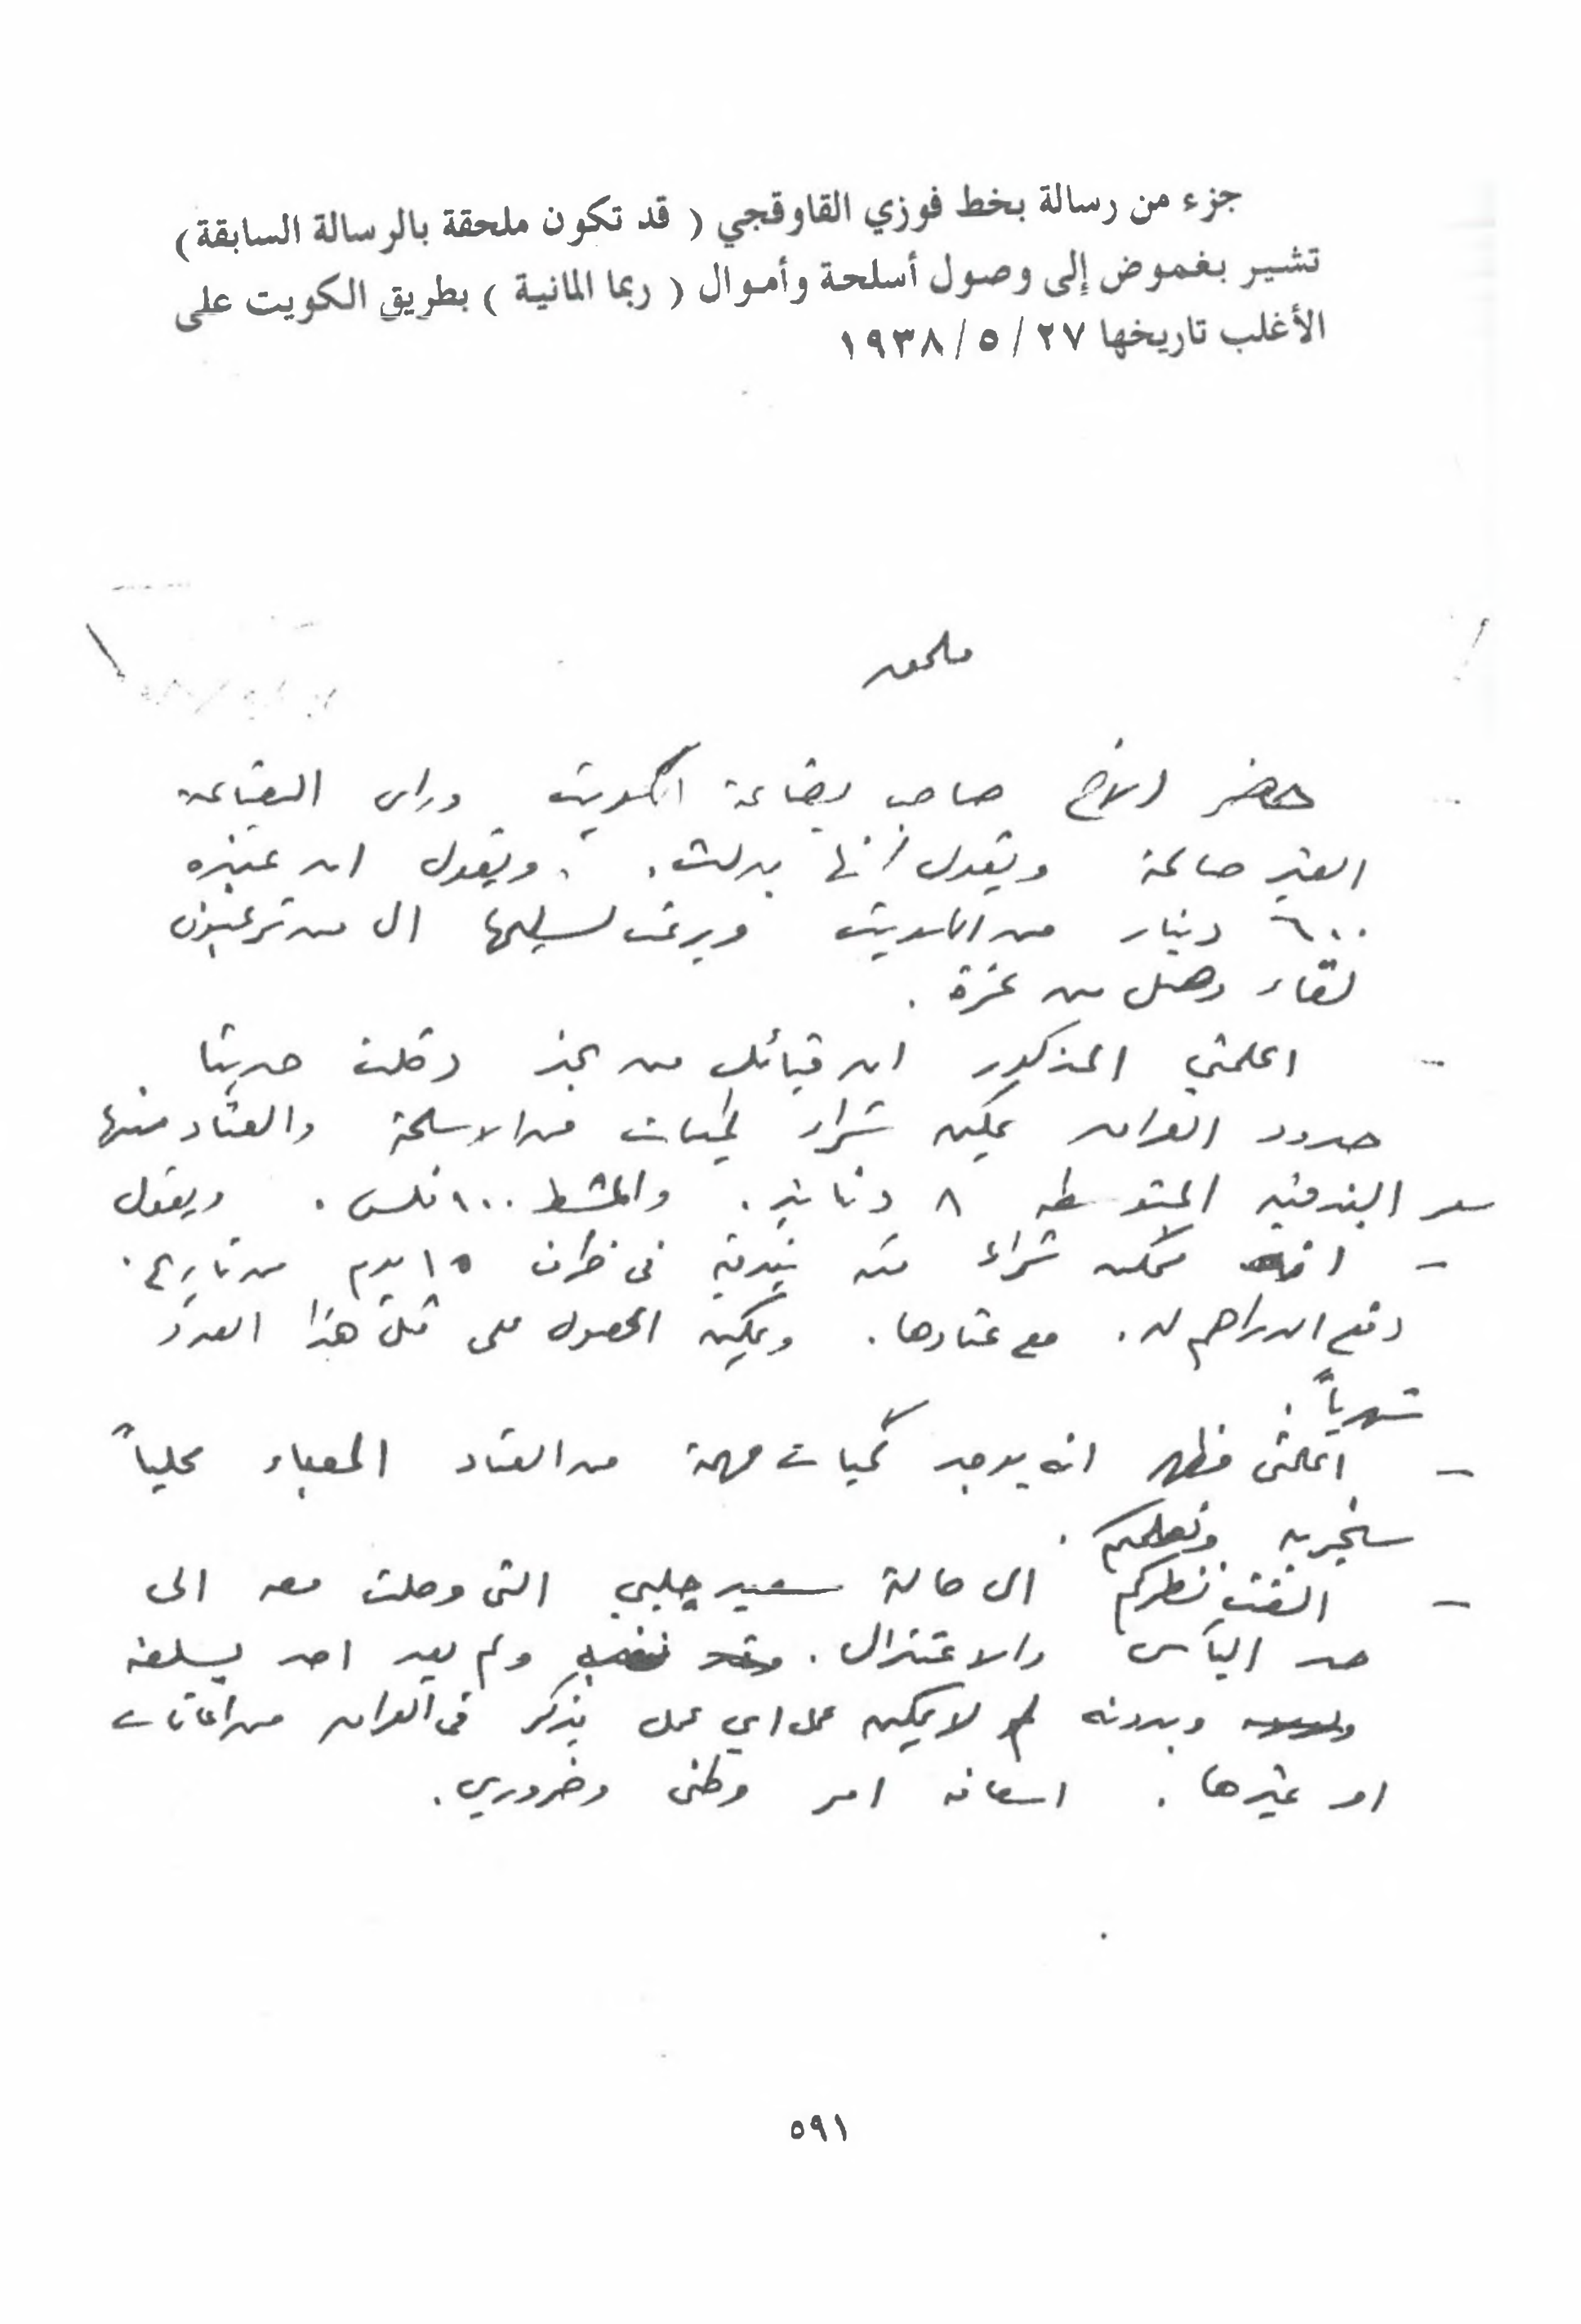 جزء من رسالة بخط فوزي القاوقجي ( قد تكون ملحقة بالرسالة السابقة )
تشير بغموض إلى وصول أسلحة وأموال ( ربما المانية ) بطريق الكويت على
الأغلب تاريخها ٢٧ / ٥ / ١٩٣٨
ملحق
- حضر الاخ صاحب بضاعة الكويت وراى البضاعة
الغير صالحة ويقول أنها بدلت . ويقول ان عنده
٦٠٠ دينار من الكويت ويرغب تسليمها الى من ترغبون
لقاء وصل من عزة .
- اعلمني المذكور ان قبائل من نجد دخلت حديثا
حدود العراق يمكن شراء كميات من الاسلحة والعتاد منها
سعر البندقية المتوسطه ٨ دنانير . والمشط ١٠٠ فلس . ويقول
- انه يمكن شراء مئة بندقية في ظرف ١٥ يوم من تاريخ
دفع الدراهم له . مع عتادها . ويمكن الحصول على مثل هذا العدد
شهرياً .
- اعلمني مظهر انه يوجد كميات مهمة من العتاد المعباء محلياً
سنجربه ونعلمكم .
- الفت نظركم الى حالة سعيد چلبي التي وصلت معه الى
حد اليأس والاعتزال . ولم يعد احد يسلفه
وبدونه لا يمكن عمل اي عمل يذكر في العراق من اعانات
او غيرها . اسعافه امر وطني وضروري .
٥٩١